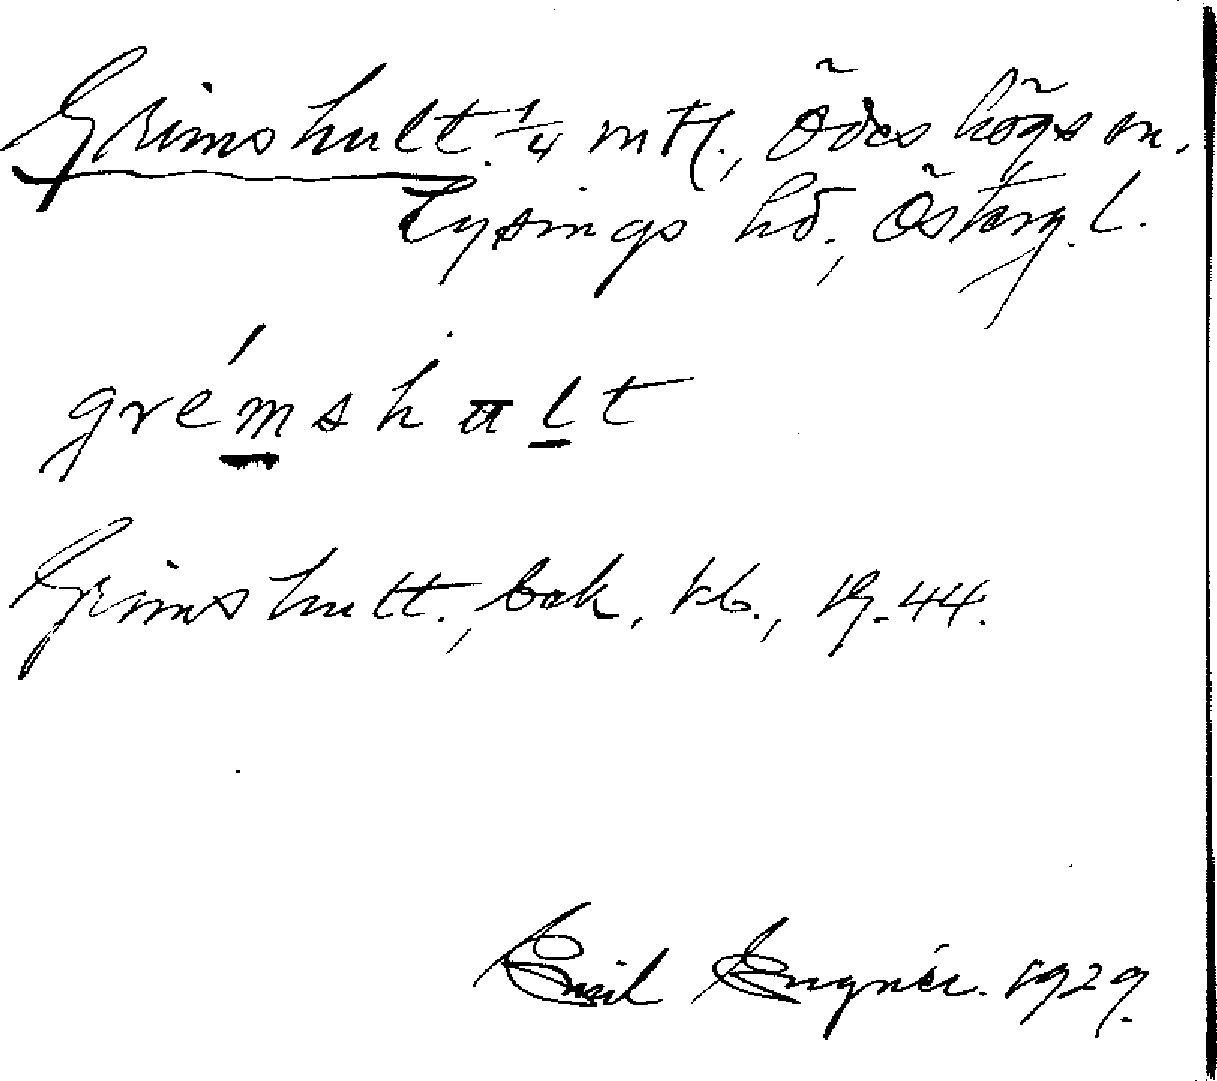 Grimshult. 1/4 mtl., Ödeshögs sn.
Lysings hd., Österg. l.
grémshult
Grimshult., bok, kb.,
Emil Engnér. 1929.